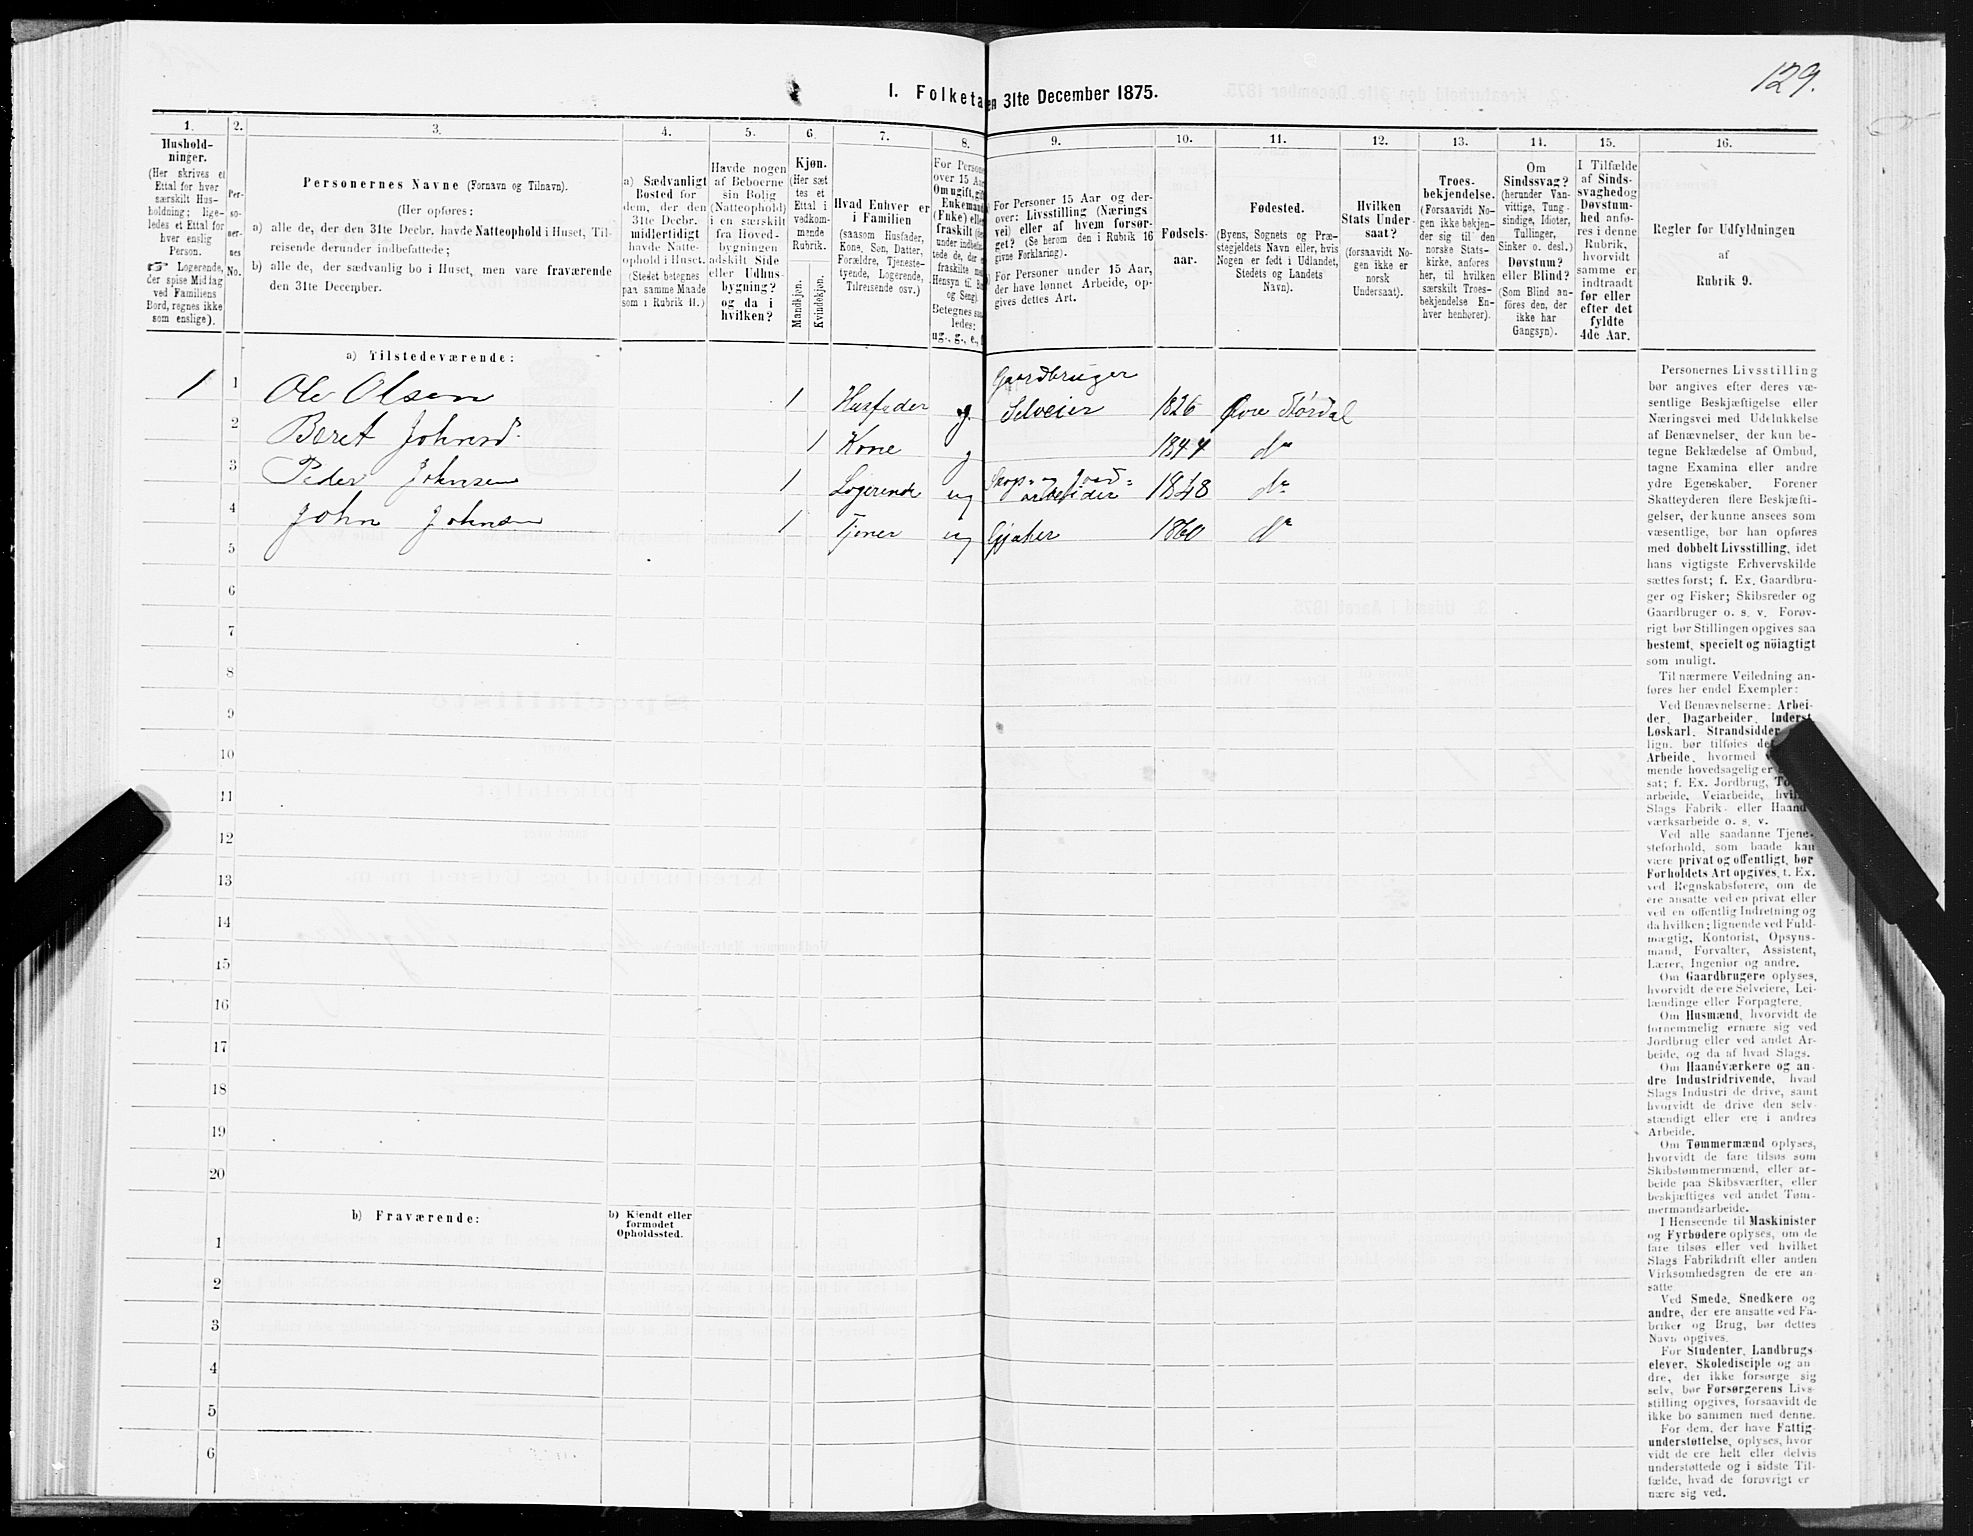 129.
I. Folketa
en 31te December 1875.
1. 2. 3. 4. 5. 6. 7. 8. 9. 10. 11. 12. 13. 14. 15. 16.
Hushold-
ninger.
(Her skrives et
Ettal for hver
særskilt Hus-
holdning; lige-
ledes et Ettal for
hver enslig
Person.
Logerende,
der spise Middag
ved Familiens
Bord, regnes ikke
som enslige).
Per-
so-
ner-
nes
No.
Personernes Navne (Fornavn og Tilnavn).
(Her opføres:
a) alle de, der den 31te Decbr. havde Natteophold i Huset, Til-
reisende derunder indbefattede;
b) alle de, der sædvanlig bo i Huset, men vare fraværende
den 31te December.
a) Sædvanligt
Bosted for
dem, der den
31te Decbr.
midlertidigt
havde Natte-
ophold i Huset.
(Stedet betegnes
paa samme Maade
som i Rubrik 11.)
Havde nogen
af Beboerne
sin Bolig
(Natteophold)
i en særskilt
fra Hoved-
bygningen
adskilt Side
eller Udhus-
bygning?
og da i
hvilken?
Kjøn.
(Her sæt
tes et
Ettal i
vedkom-
mende
Rubrik.
Mandkjøn.
Kvindekjøn.
Hvad Enhver er
i Familien
(saasom Husfader,
Kone, Søn, Datter,
Forældre, Tjeneste-
tyende, Logerende,
Tilreisende osv.)
For Persone
over 15 Aa
Om ugift, gi
Enkemand
(Enke) elle
fraskilt (de
under indbe
tede de, der e
fraskilte me
Hensyn til B
og Seng).
Betegnes saa
ledes:
ug., g., e.,
For Personer 15 Aar og der-
over: Livsstilling (Nærings
vei) eller af hvem forsør-
get? (Se herom den i Rubrik 16
givne Forklaring).
For Personer under 15 Aar,
der have lønnet Arbeide, op-
gives dettes Art.
Fødsels-
aar.
Fødested.
(Byens, Sognets og Præ-
stegjeldets Navn eller, hvis
Nogen er født i Udlandet,
Stedets og Landets
Navn).
Hvilken
Stats Under-
saat?
(forsaavidt No-
gen ikke er
norsk
Undersaat).
Troes-
bekjendelse.
(Forsaavidt No-
gen ikke bekjen-
der sig til den
norske Stats-
kirke, anføres
her, til hvilken
særskilt Troes-
bekjendelse En-
hver henhører).
Om
Sindssvag?
(herunder Van-
vittige, Tung-
sindige, Idioter,
Tullinger,
Sinker o. desl.)
Døvstum?
eller Blind?
(Som Blind an-
føres den, der
ikke har
Gangsyn).
I Tilfælde
af Sinds-
svaghed og
Døvstum-
hed anfø-
res i denne
Rubrik,
hvorvidt
samme er
indtraadt
før eller
efter det
fyldte
4de Aar.
Regler for Udfyldningen
af
Rubrik 9.
a) Tilstedeværende:
1 1 Ole Olsen 1 Husfader g. Gaardbruger
Selveier 1826 Øvre Størdal
2 Beret Johnsd. 1 Kone g 1844 do
3 Peder Johnsen 1 Logerende ug Skop- og Jord=
arbeider 1848 do
4 John Johnsen 1 Tjener ug Gjæter 1860 do
5
6
7
8
9
10
11
12
13
14
15
16
17
18
19
20
b) Fraværende:
b) Kjendt eller
formodet
Opholdssted.
1
2
3
4
5
6
Personernes Livsstilling
bør angives efter deres væ-
sentlige Beskjæftigelse eller
Næringsvei med Udelukkelse
af Benævnelser, der kun be-
tegne Beklædelse af Ombud,
tagne Examina eller andre
ydre Egenskaber. Forener
Skatteyderen flere Beskjæfti-
gelser, der kunne ansees som
væsentlige, bør han opføres
med dobbelt Livsstilling, idet
hans vigtigste Erhvervskilde
sættes først; f. Ex. Gaardbru-
ger og Fisker; Skibsreder og
Gaardbruger o. s. v. Forøv-
rigt bør Stillingen opgives saa
bestemt, specielt og nöiagtigt
som muligt.
Til nærmere Veiledning an-
føres her endel Exempler:
Ved Benævnelserne: Arbei-
der, Dagarbeider, Inderst,
Løskarl, Strandsidder
lign. bør tilføies de
Arbeide, hvormed
mende hovedsagelig er
sat; f. Ex. Jordbrug, To
arbeide, Veiarbeide, hvil
Slags Fabrik- eller Haand-
værksarbeide o. s. v.
Ved alle saadanne Tjene-
steforhold, som baade kan
være privat og offentligt, bør
Forholdets Art opgives, t. Ex.
ved Regnskabsførere, om de
ere ansatte ved en privat eller
ved en offentlig Indretning og
da hvilken; lignende ved Fuld-
mægtig, Kontorist, Opsyns-
mand, Forvalter, Assistent,
Lærer, Ingeniør og andre.
Om Gaardbrugere oplyses,
hvorvidt de ere Selveiere, Lei-
lændinge eller Forpagtere.
Om Husmænd, hvorvidt de
fornemmelig ernære sig ved
Jordbrug eller ved andet Ar-
beide, og da af hvad Slags.
Om Haandværkere og an-
dre Industridrivende, hvad
Slags Industri de drive, samt
hvorvidt de drive den selv-
stændigt eller ere i andres
Arbeide.
Om Tømmermænd oplyses,
hvorvidt de fare tilsøs som
Skibstømmermænd, eller ar-
beide paa Skibsværfter, eller
beskjæftiges ved andet Tøm-
mermandsarbeide.
I Henseende til Maskinister
og Fyrbødere oplyses, om de
fare tilsøs eller ved hvilket
Slags Fabrikdrift eller anden
Virksomhedsgren de ere an-
satte.
Ved Smede, Snedkere og
andre, der ere ansatte ved Fa-
briker og Brug, bør dettes
Navn opgives.
For Studenter, Landbrugs-
elever, Skoledisciple og an
dre, der ikke forsørge sig
selv, bør Forsørgerens Livs-
stilling opgives, forsaavidt de
ikke bo sammen med denne.
For dem, der have Fattig-
understøttelse, oplyses, hvor
vidt de ere helt eller delvis
understøttede og i sidste Til-
fælde, hvad de forøvrigt er
nære sig ved.